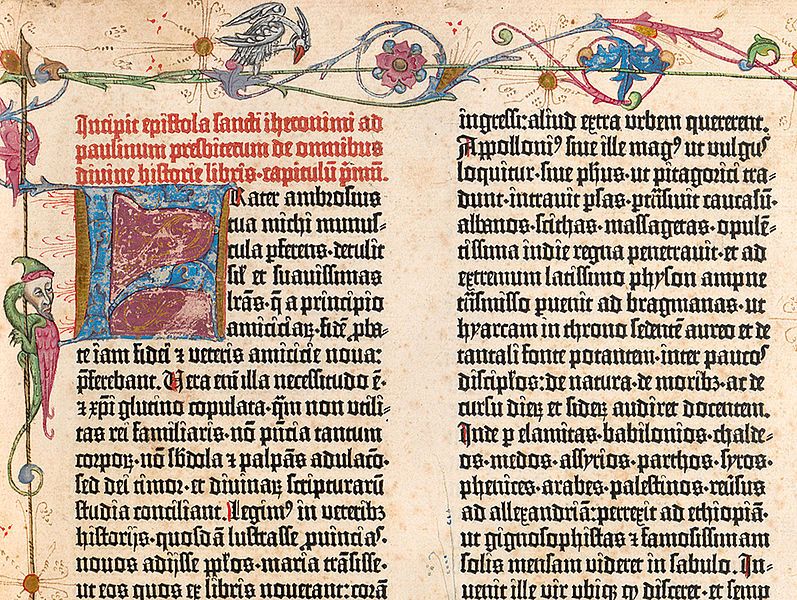 Incipit epistola sancti iheronimi ad
paulinum presbiterum de omnibus
divine historie libris·capitulū prmū.
FRater ambrosius
tua michi munus-
cula pferens·detulit
sil et suavissimas
lrās·q̄ a principio
amiciciaꝝ·fidē pba-
te iam fidei ⁊ veteris amicicie nova:
pferebant. Vera enī illa necessitudo ē·
⁊ xpi glutino copulata·qm non utili-
tas rei familiaris·nō pncia tantum
corpoꝝ·nō sbdola ⁊ palpās adulacō·
sed dei timor·et divinaꝝ scripturarū
studia conciliant. Legimꝰ in veteribꝫ
historijs·quosdā lustrasse puinciaˢ·
novos adijsse pplos·maria trāsisse·
ut eos quos ex libris noverant: corā
ingressi: aliud extra urbem quererent.
Appolloniꝰ sive ille magꝰ ut vulgꝰ
loquitur·sive phus·ut pitagorici tra-
dunt·intravit psas·ptrāsivit caucasū·
albanos·scithas·massagetas·opulē-
tissima indie regna penetravit·et ad
extremum latissimo physon ampne
trāsmisso puenit ad bragmanas·ut
hyarcam in throno sedentē aureo et de
tantali fonte potantem·inter paucoˢ
discipulos: de natura·de moribꝫ·ac de
cursu dieꝝ et sideꝝ audiret docentem.
Inde p elamitas·babilonios·chalde-
os·medos·assyrios·parthos·syros·
phenices·arabes·palestinos·reūsus
ad allexandriā: perrexit ad ethiopiā·
ut gignosophistas ⁊ famosissimam
solis mensam videret in sabulo. In-
venit ille vir ubiqꝫ qd disceret·et semp